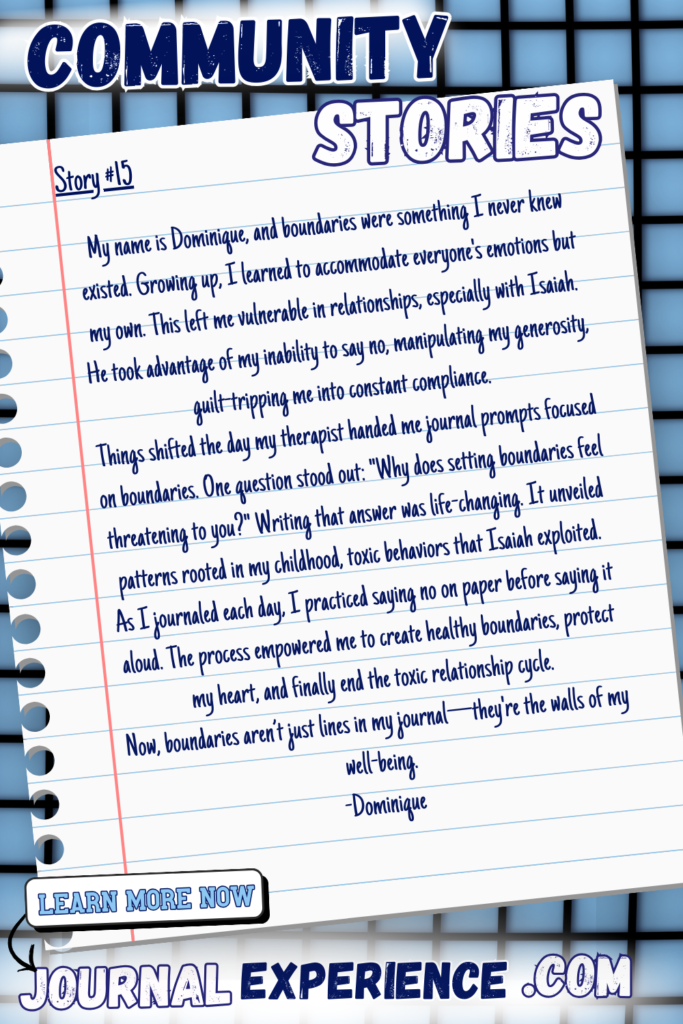 COMMUNITY
STORIES
Story #15
My name is Dominique, and boundaries were something I never knew
existed. Growing up, I learned to accommodate everyone's emotions but
my own. This left me vulnerable in relationships, especially with Isaiah.
He took advantage of my inability to say no, manipulating my generosity,
guilt-tripping me into constant compliance.
Things shifted the day my therapist handed me journal prompts focused
on boundaries. One question stood out: "Why does setting boundaries feel
threatening to you?" Writing that answer was life-changing. It unveiled
patterns rooted in my childhood, toxic behaviors that Isaiah exploited.
As I journaled each day, I practiced saying no on paper before saying it
aloud. The process empowered me to create healthy boundaries, protect
my heart, and finally end the toxic relationship cycle.
Now, boundaries aren't just lines in my journal—they're the walls of my
well-being.
-Dominique
LEARN MORE NOW
JOURNAL EXPERIENCE .COM